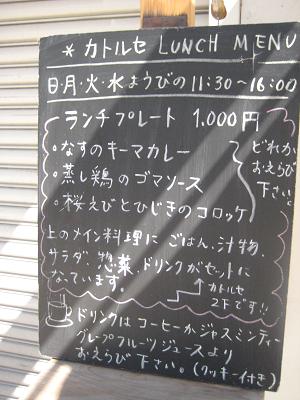 * カトルセ LUNCH MENU
日・月・火・水ようびの 11:30～16:00
ランチプレート 1.000円
・なすのキーマカレー
・蒸し鶏のゴマソース
・桜えびとひじきのコロッケ
どれか
おえらび
下さい。
上のメイン料理にごはん、汁物、
サラダ、惣菜、ドリンクがセットに
なっています。
カトルセ
2Fです!!
ドリンクはコーヒーかジャスミンティー
グレープフルーツジュースより
おえらび下さい。(クッキー付き)